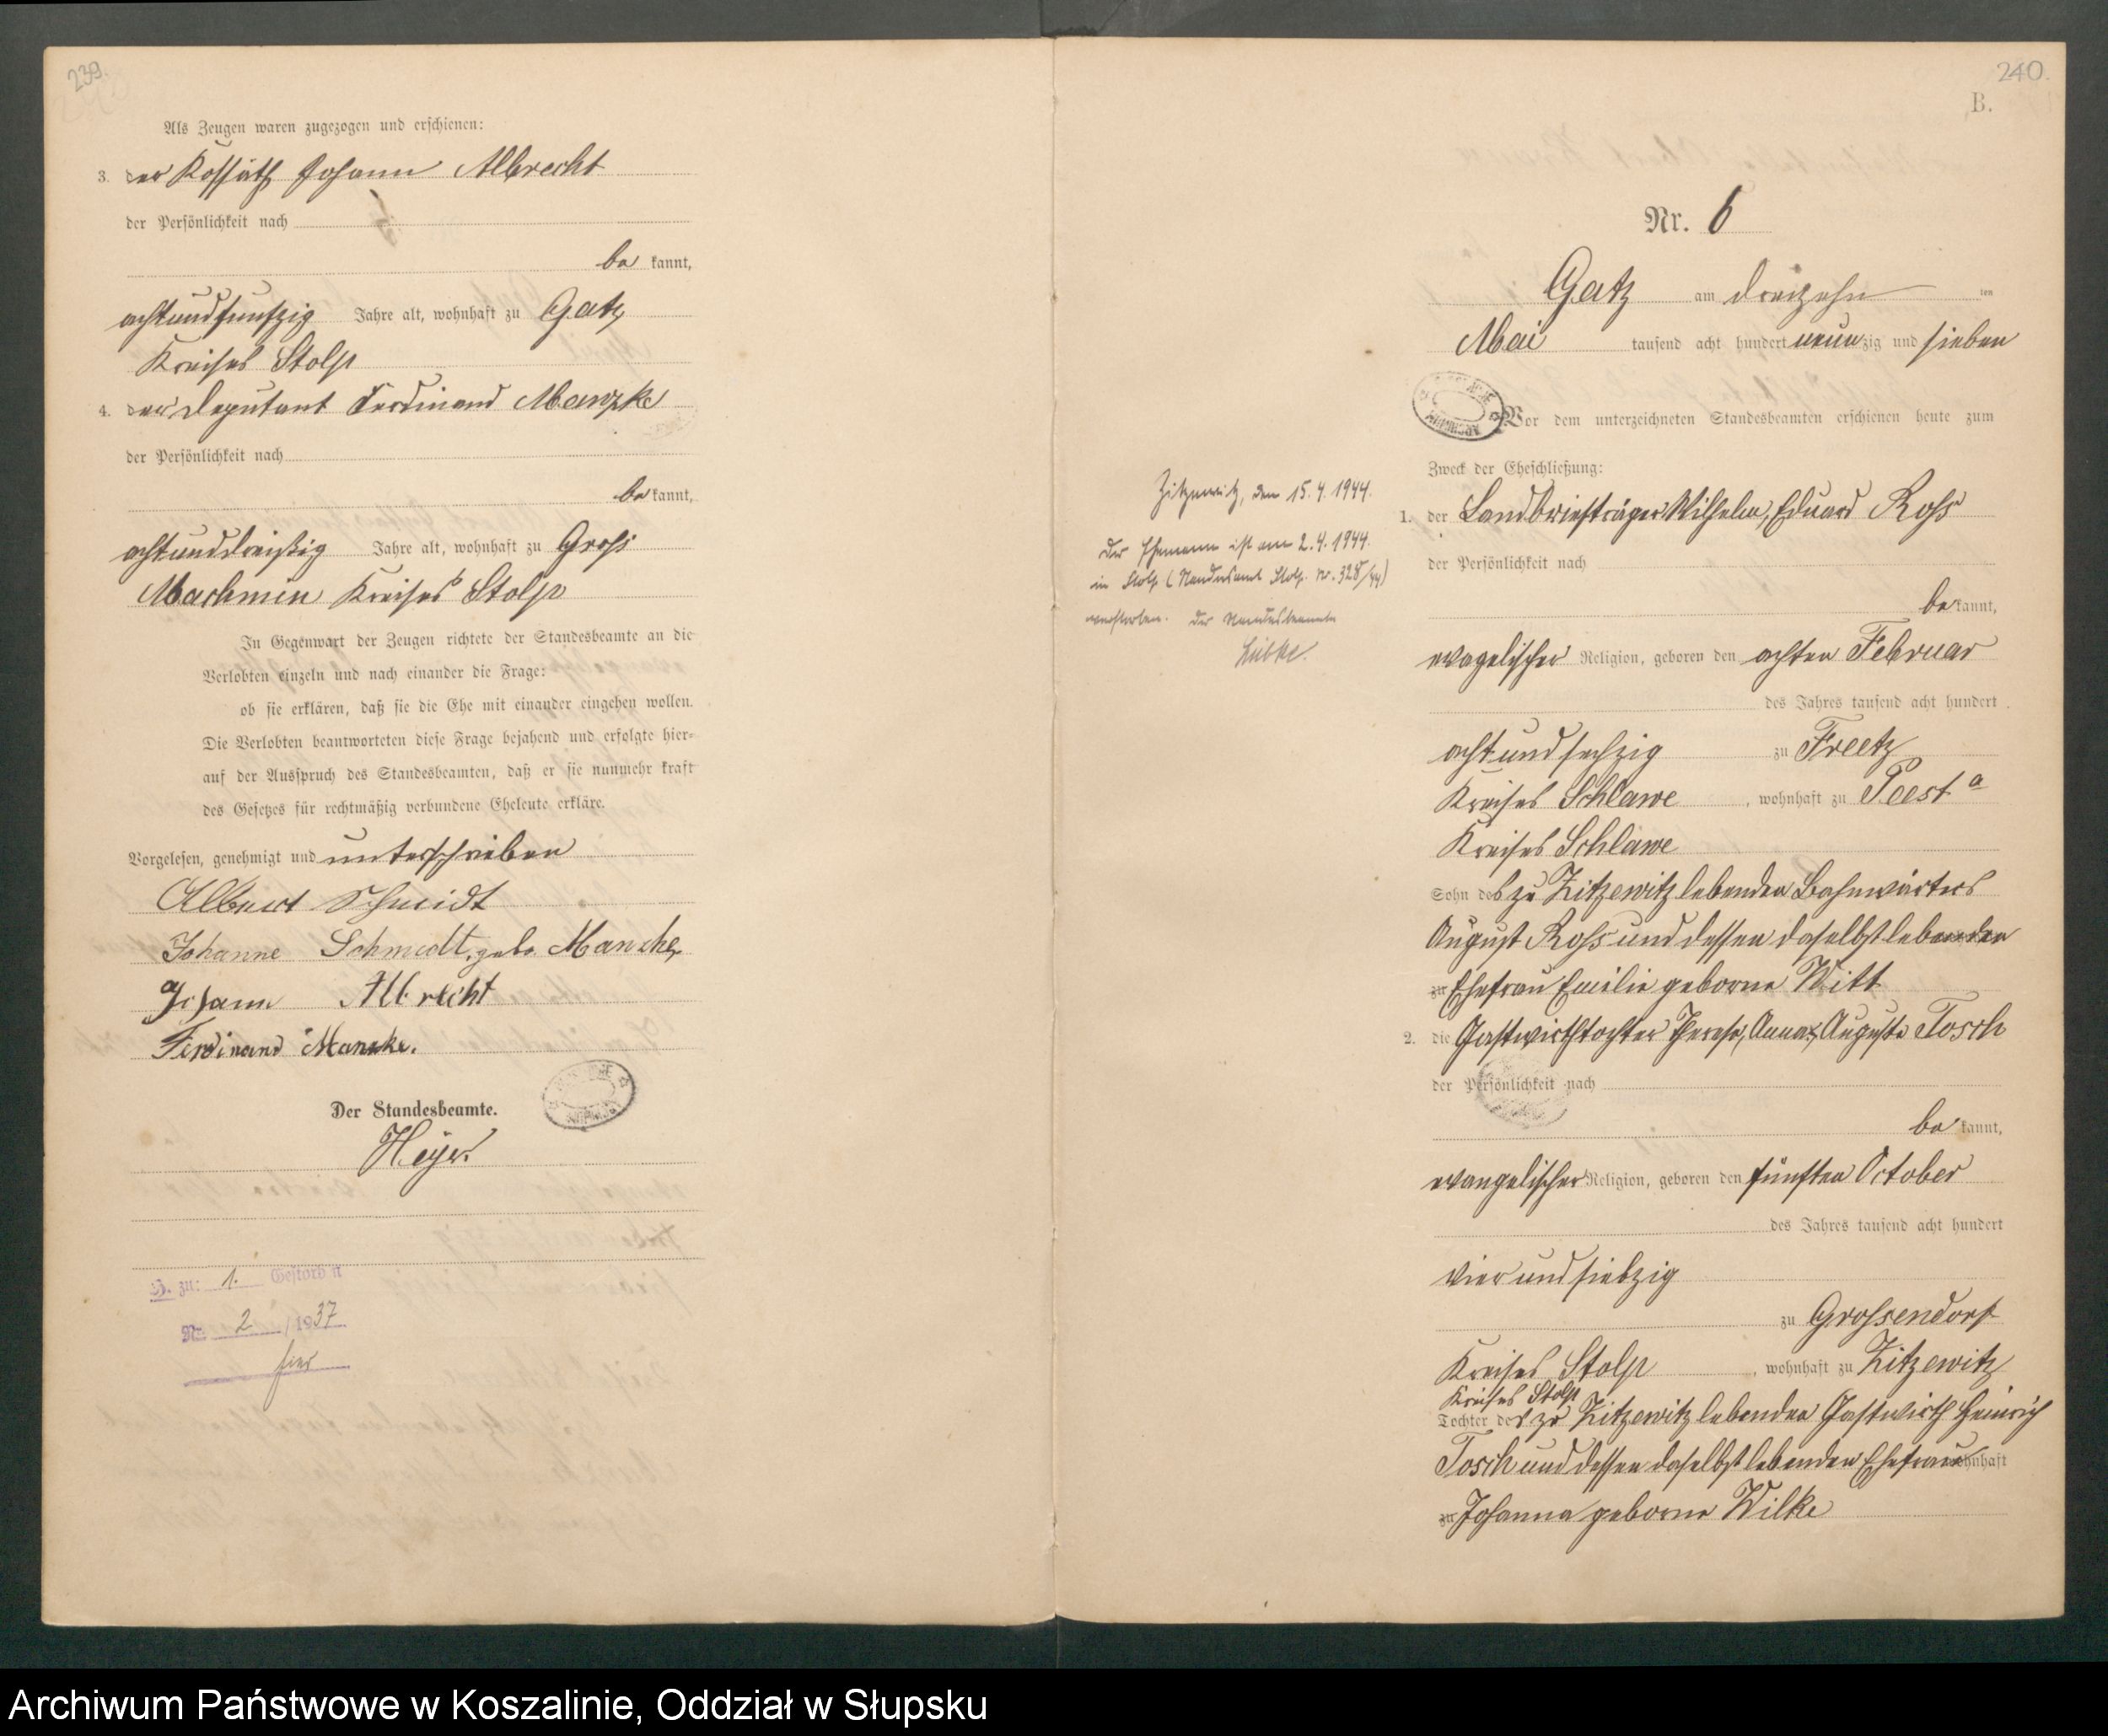 239.
Als Zeugen waren zugezogen und erschienen:
3. der Kossäth Johann Albrecht
der Persönlichkeit nach
be kannt,
achtundfunfzig Jahre alt, wohnhaft zu Gatz
Kreises Stolp
4. der Deputant Ferdinand Manzke
der Persönlichkeit nach
be kannt,
achtunddreißig Jahre alt, wohnhaft zu Gross
Machmin Kreises Stolp
In Gegenwart der Zeugen richtete der Standesbeamte an die
Verlobten einzeln und nach einander die Frage:
ob sie erklären, daß sie die Ehe mit einander eingehen wollen.
Die Verlobten beantworteten diese Frage bejahend und erfolgte hier-
auf der Ausspruch des Standesbeamten, daß er sie nunmehr kraft
des Gesetzes für rechtmäßig verbundene Eheleute erkläre.
Vorgelesen, genehmigt und unterschrieben
Albert Schmidt
Johanne Schmidt, geb.
Johann Albrecht
Ferdinand Manzke.
Der Standesbeamte.
Heyer
H. zu: 1. Gestorb n
Nr. 2 /1937
hier
240.
B.
Nr. 6
Gatz am dreizehn ten
Mai tausend acht hundert neun zig und sieben
Vor dem unterzeichneten Standesbeamten erschienen heute zum
Zweck der Eheschließung:
1. der Landbriefträger Wilhelm, Eduard Ross
der Persönlichkeit nach
be kannt,
evagelischer Religion, geboren den achten Februar
des Jahres tausend acht hundert
acht und sechzig zu Freetz
Kreises Schlawe, wohnhaft zu Peest a
Kreises Schlawe
Sohn des zu Zitzewitz lebenden Bahnwärters
August Ross und dessen daselbst lebenden
zu Ehefrau Emilie geborne Witt
2. die Gastwirthtochter Therese, Anna, Auguste Tosch
der Persönlichkeit nach
be kannt,
evangelischer Religion, geboren den fünften October
des Jahres tausend acht hundert
vier und siebzig
zu Grossendorf
Kreises Stolp, wohnhaft zu Zitzewitz
Kreises Stolp
Tochter des zu Zitzewitz lebenden Gastwirth Heinrich
Tosch und dessen daselbst lebenden Ehefrau wohnhaft
zu Johanna geborne Wilke
Zitzewitz, den 15.4.1944.
Der Ehemann ist am 2.4.1944.
in Stolp (Standesamt Stolp. Nr. 328/44)
verstorben. Der Standesbeamte
Lübke.
Archiwum Państwowe w Koszalinie, Oddział w Słupsku